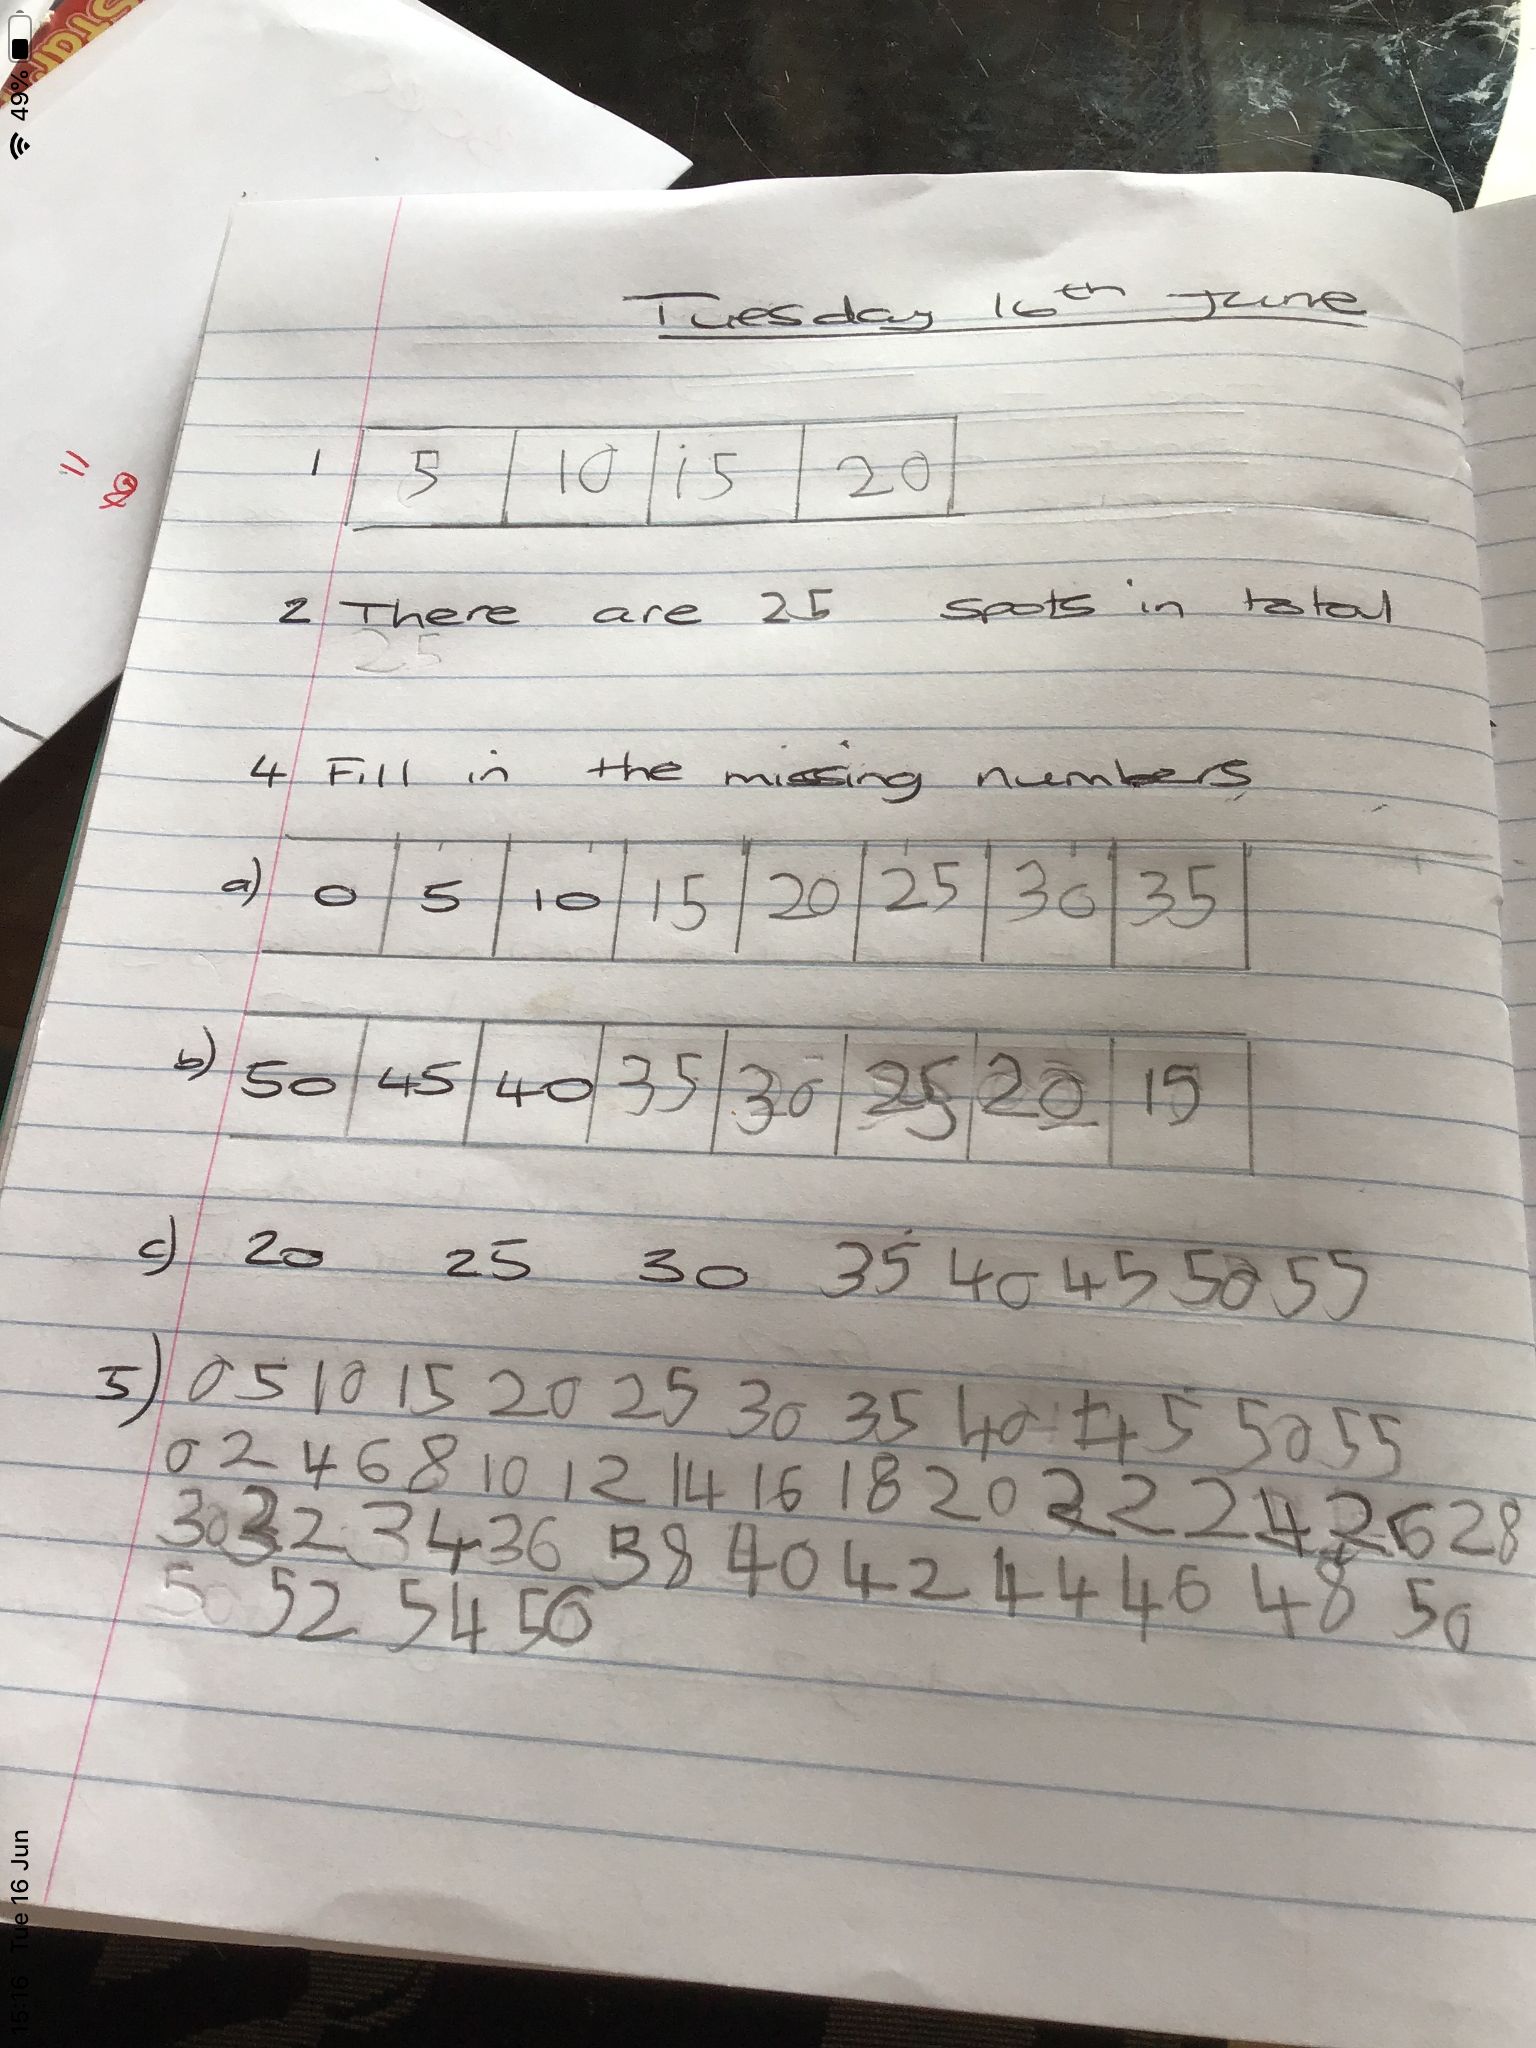 49%
Tuesday 16th June
1 5 10 15 20
2 There are 25 spots in total
25
4 Fill in the missing numbers
a) 0 5 10 15 20 25 30 35
b) 50 45 40 35 30 25 20 15
c) 20 25 30 35 40 45 50 55
5) 0 5 10 15 20 25 30 35 40 45 50 55
0 2 4 6 8 10 12 14 16 18 20 22 24 26 28
30 32 34 36 38 40 42 44 46 48 50
50 52 54 56
15:16 Tue 16 Jun